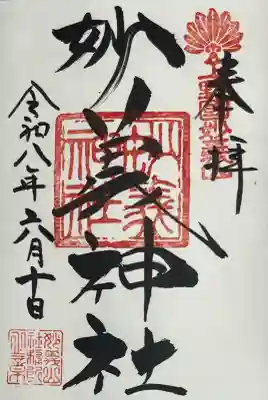 奉拝
妙義神社
令和八年六月十日